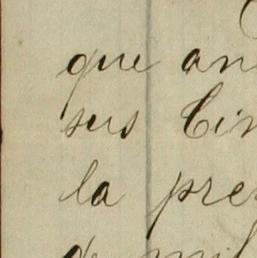 que an
sus Cin
la pre
de mil